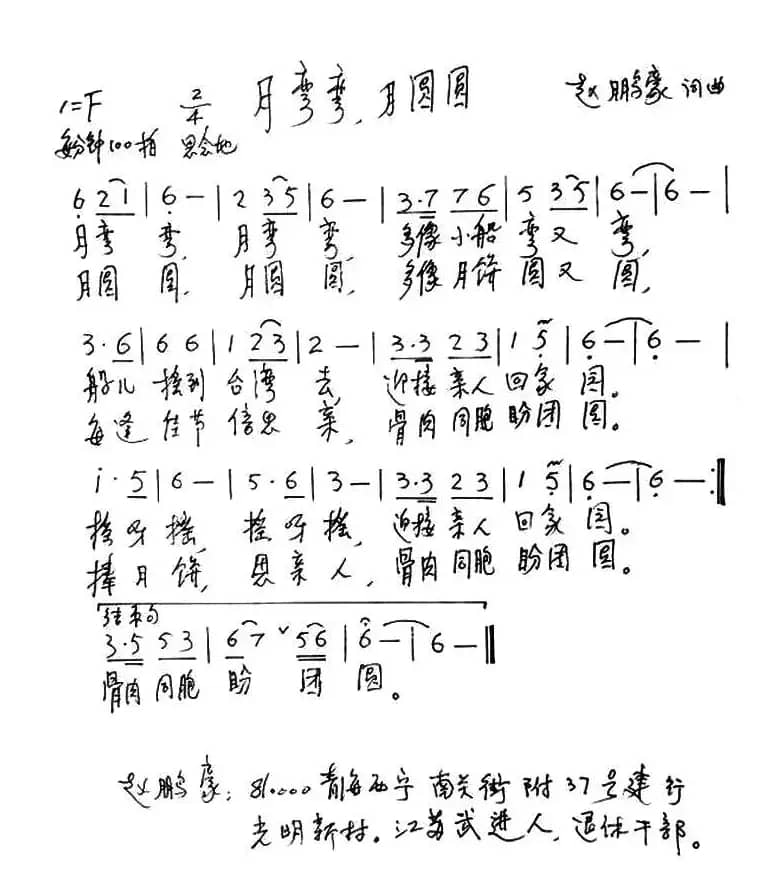 月弯弯，月圆圆
1=F 2/4 赵鹏豪 词曲
每分钟100拍 思念地
6 2 1 | 6 — | 2 3 5 | 6 — | 3·7 7 6 | 5 3 5 | 6 — | 6 — |
月弯 弯， 月弯 弯， 多像小船 弯又 弯，
月圆 圆， 月圆 圆， 多像月饼 圆又 圆，
3·6 | 6 6 | 1 2 3 | 2 — | 3·3 2 3 | 1 5 | 6 — | 6 — |
船儿 摇到 台湾 去， 迎接亲人 回家 园。
每逢 佳节 倍思 亲， 骨肉同胞 盼团 圆。
i·5 | 6 — | 5·6 | 3 — | 3·3 2 3 | 1 5 | 6 — | 6 — :‖
摇呀 摇， 摇呀 摇， 迎接亲人 回家 园。
捧月 饼， 思亲 人， 骨肉同胞 盼团 圆。
结束句
3·5 5 3 | 6 7 ˅ 5 6 | 6 — | 6 — ‖
骨肉同胞 盼 团 圆。
赵鹏豪：810000 青海西宁 南关街 附37号建行
光明新村。江苏武进人，退休干部。